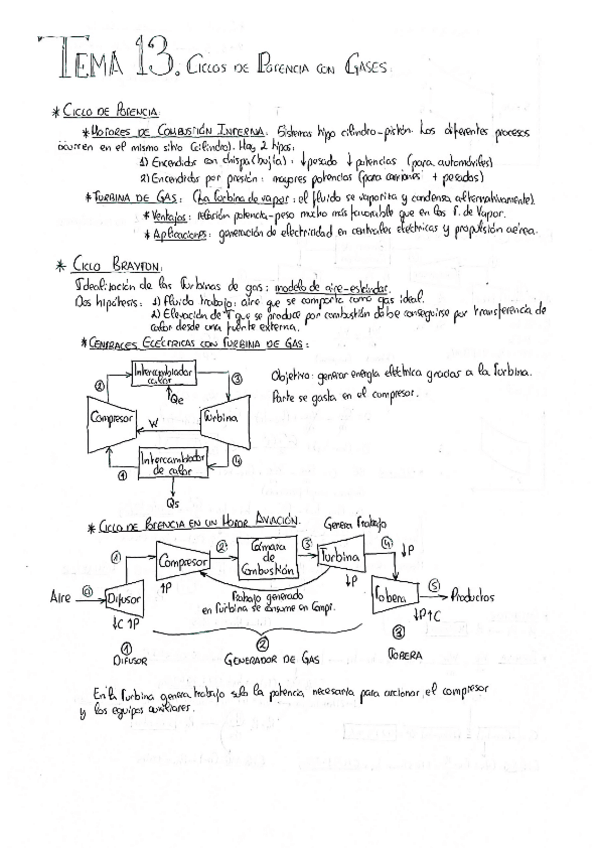 TEMA 13. CICLOS DE POTENCIA CON GASES.
* CICLO DE POTENCIA:
* MOTORES DE COMBUSTIÓN INTERNA: Sistemas tipo cilindro-pistón. Los diferentes procesos
ocurren en el mismo sitio (cilindro). Hay 2 tipos:
1) Encendido con chispa (bujía): ↓pesado ↓potencias (para automóviles)
2) Encendido por presión: mayores potencias (para camiones + pesados)
* TURBINA DE GAS: (La turbina de vapor: el fluido se vaporiza y condensa alternativamente).
* Ventajas: relación potencia-peso mucho más favorable que en las T. de Vapor.
* Aplicaciones: generación de electricidad en centrales eléctricas y propulsión aérea.
* CICLO BRAYTON:
Idealización de las turbinas de gas: modelo de aire-estándar.
Dos hipótesis: 1) Fluido trabajo: aire que se comporta como gas ideal.
2) Elevación de T que se produce por combustión debe conseguirse por transferencia de
calor desde una fuente externa.
* CENTRALES ELÉCTRICAS CON TURBINA DE GAS:
Objetivo: generar energía eléctrica gracias a la turbina.
Parte se gasta en el compresor.
Intercambiador calor
② ③
Qe
Compresor W Turbina
Intercambiador de calor
① ④
Qs
* CICLO DE POTENCIA EN UN MOTOR AVIACIÓN.
Genera Trabajo
① Compresor ② Cámara de Combustión ③ Turbina ④ ↓P
↑P ↓P
Aire ⓪ Difusor
Trabajo generado
en turbina se consume en Compr.
Tobera ⑤ Productos
↓C ↑P ↓P ↑C
① ② ③
DIFUSOR GENERADOR DE GAS TOBERA
En la turbina genera trabajo solo la potencia necesaria para accionar el compresor
y los equipos auxiliares.